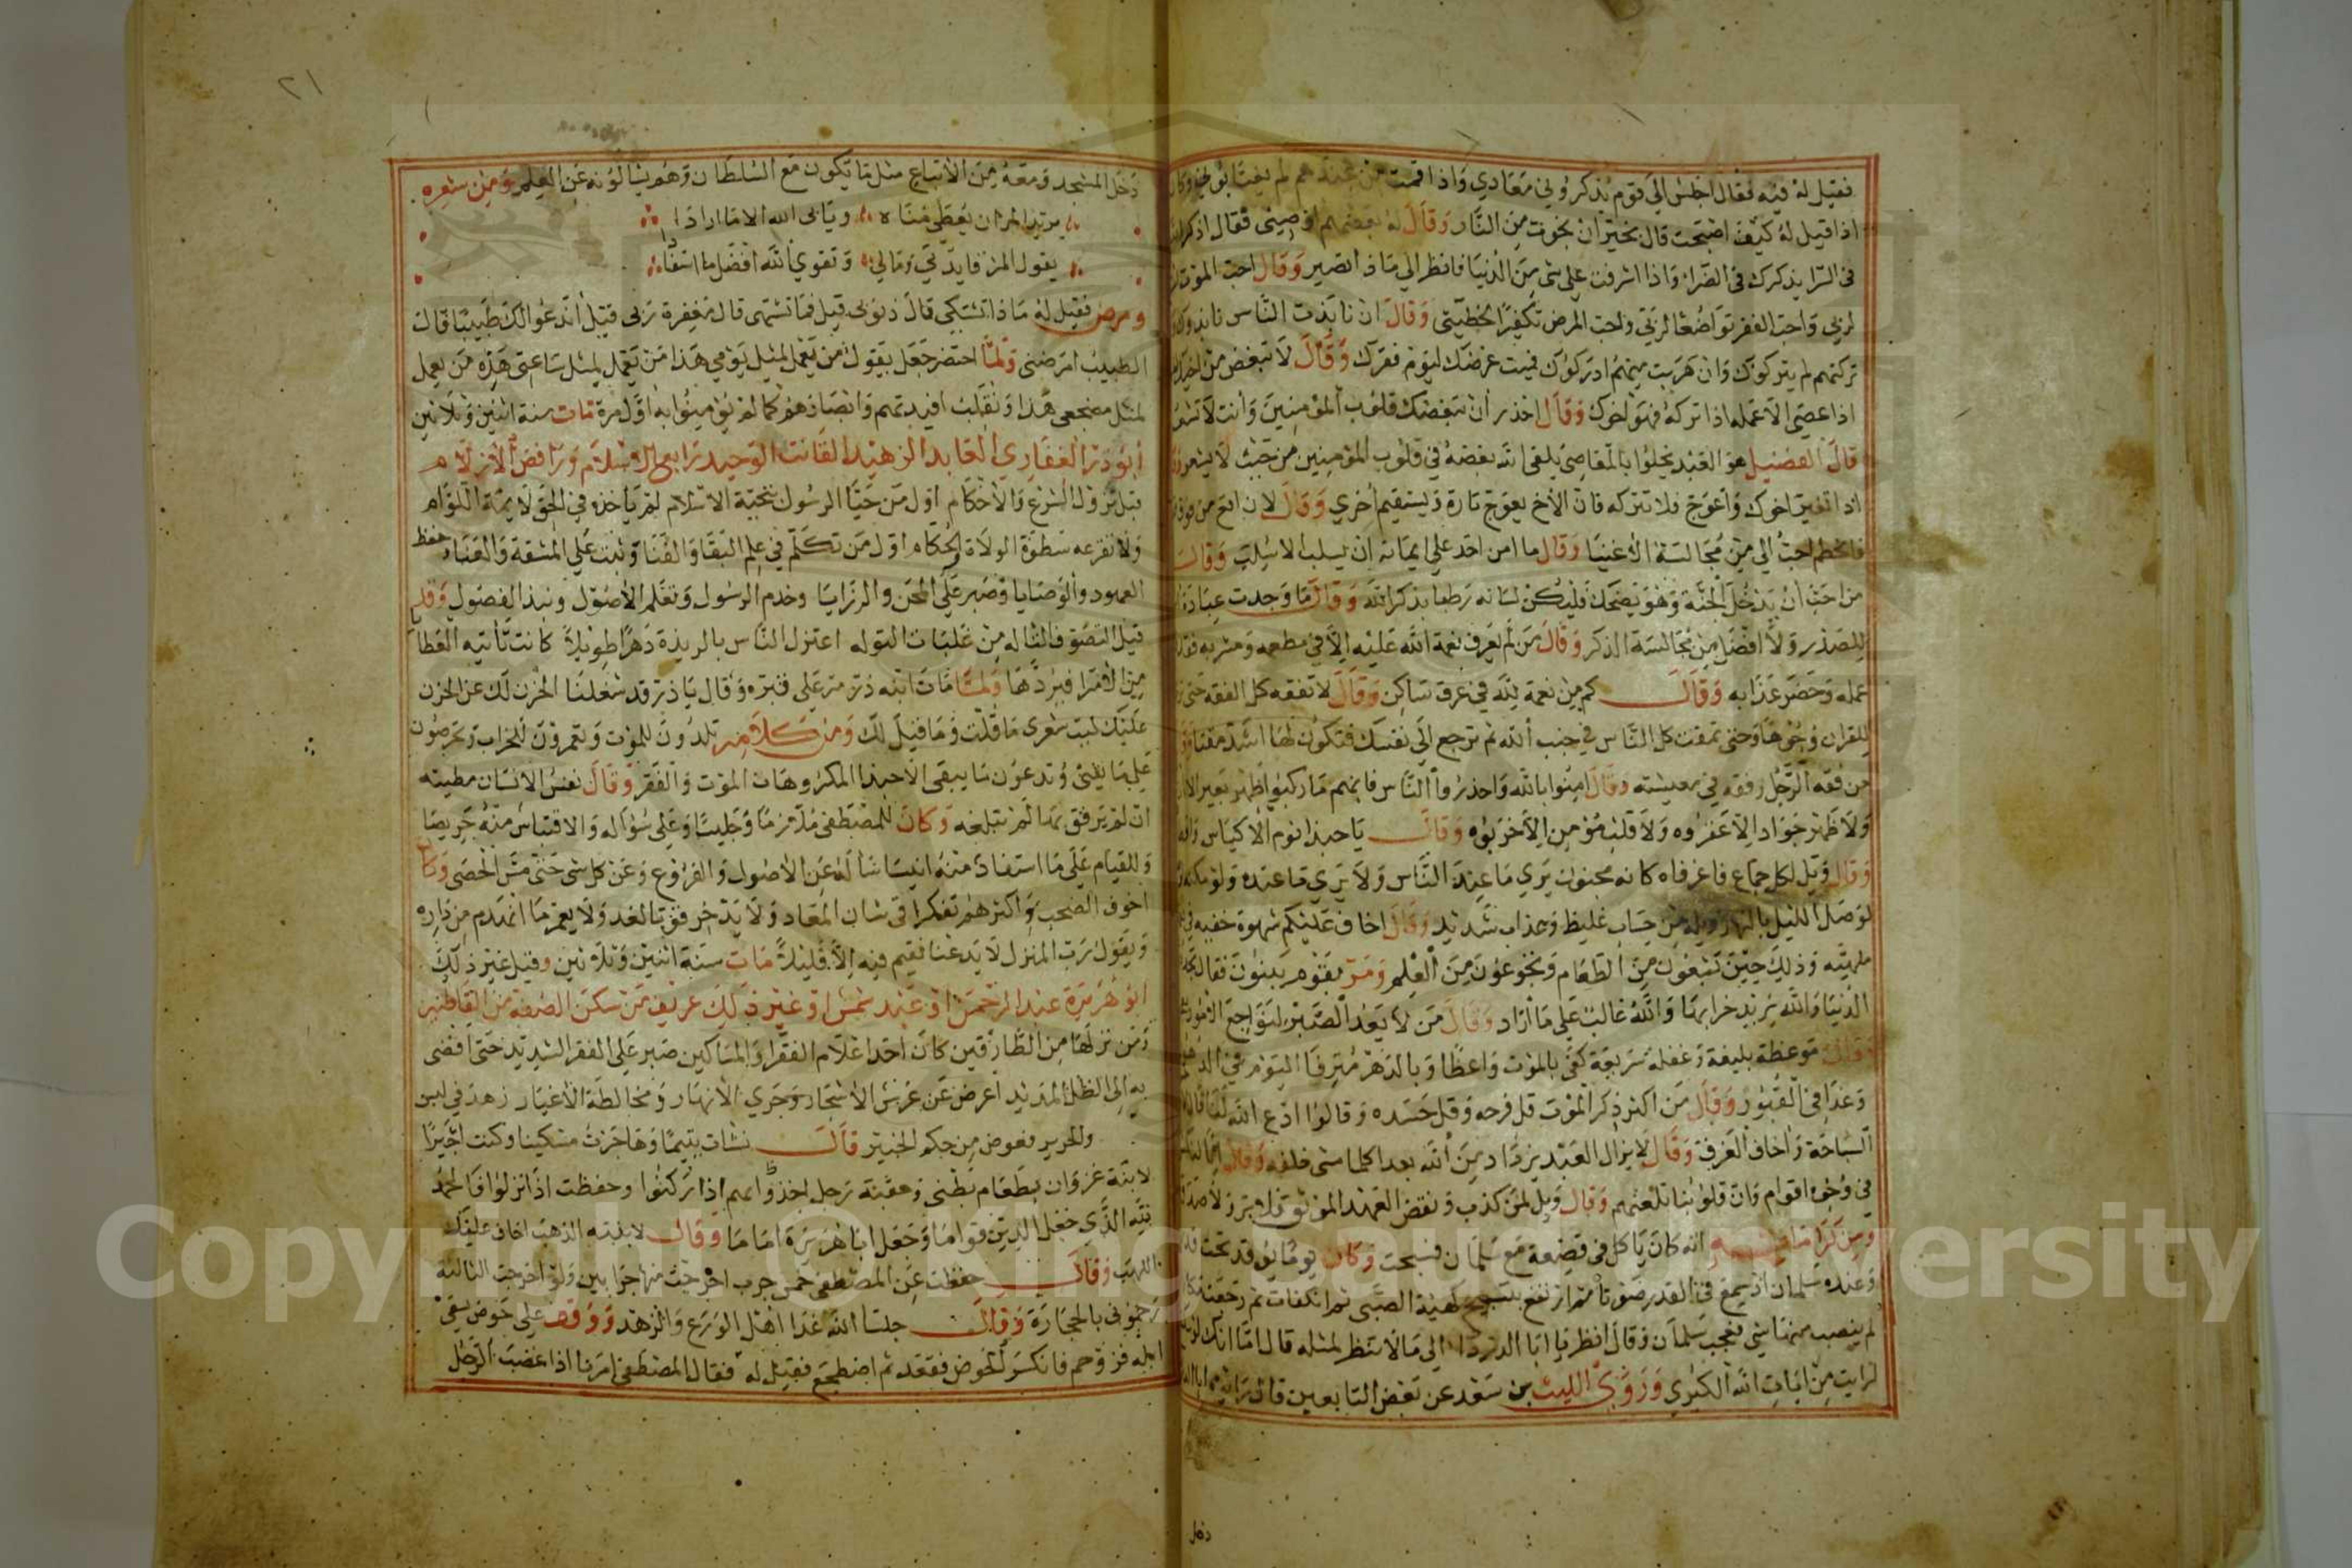 فقيل له فيه فقال اجلس الي قوم يذكروني معادي واذا قمت من عندهم لم يغتابوني وكان
اذا قيل له كيف اصبحت قال بخير ان نجوت من النار وقال له بعضهم اوصيني فقال اذكر الله
في السرا يذكرك في الضراء واذا اشرفت علي شي من الدنيا فانظر الي ماذا يصير وقال احب الموت
لربي واحب الفقر تواضعا لربي واحب المرض تكفيرا لخطيتي وقال ان نابذت الناس نابذوك وان
تركتهم لم يتركوك وان هربت منهم ادركوك فهب عرضك ليوم فقرك وقال لا تبغض من اخيك
اذا عصي الا عمله اذا تركه فهو اخوك وقال احذر ان تبغضك قلوب المومنين وانت لا تشعر
قال الفضيل هو العبد يخلوا بالمعاصي يلقي الله بغضه في قلوب المومنين من حيث لا يشعر وقال
اذا تغير اخوك واعوج فلا تتركه فان الاخ يعوج تارة ويستقيم اخري وقال لان اقع من فوق
فانحطم احب الي من مجالسة الاغنيا وقال ما امن احد علي ايمانه ان يسلب الا سلب وقال
من احب ان يدخل الجنة وهو يضحك فليكن لسانه رطبا بذكر الله وقال ما وجدت عبادة
للصدر ولا افضل من مجالسة الذكر وقال من لم يعرف نعمة الله عليه الا في مطعمه ومشربه فقد قل
عمله وحضر عذابه وقال كم من نعمة لله في عرق ساكن وقال لا تفقه كل الفقه حتي تري
للقران وجوها وحتي تمقت كل الناس في جنب الله ثم ترجع الي نفسك فتكون لها اشد مقتا وقال
من فقه الرجل رفقه في معيشته وقال امنوا بالله واحذروا الناس فانهم ما ركبوا ظهر بعير الا
ولا ظهر جواد الا عقروه ولا قلب مؤمن الا خربوه وقال يا حبذا نوم الاكياس
وقال ويل لكل جماع فاغرفاه كانه مجنون يري ما عند الناس ولا يري ما عنده ولو
لوصل الليل بالنهار ويله من حساب غليظ وعذاب شديد وقال اخاف عليكم شهوة خفيه في
ملهيته وذلك حين تشبعون من الطعام وتجوعون من العلم ومر بقوم يبنون فقال
الدنيا والله يريد خرابها والله غالب علي ما اراد وقال من لا يعد الصبر لفواجع الامور
وقال موعظة بليغة وغفلة سريعة كفي بالموت واعظا وبالدهر مفرقا اليوم في الدور
وغدا في القبور وقال من اكثر ذكر الموت قل فرحه وقل حسده وقالوا ادع الله لنا قال لا
السباحة واخاف الغرق وقال لا يزال العبد يزداد من الله بعدا كلما مشي خلفه وقال
في وجوه اقوام وان قلوبنا تلعنهم وقال ويل لمن كذب ونقض العهد الموثق
ومن كراماته انه كان ياكل في قصعة مع سلمان فسبحت وكان يوما يوقد تحت
وعنده سلمان اذ سمع في القدر صوتا ثم ارتفع بتسبيح كهيئة الصبي ثم انكفات ثم رجعت
لم ينصب منها شي فعجب سلمان وقال انظر يا ابا الدرداء الي ما لا ننتظر لمثله قال اما انك لو
لرايت من ايات الله الكبري وروي الليث بن سعد عن بعض التابعين قال رايت
دخل
٢١
دخل المسجد ومعه من الاتباع مثل ما تكون مع السلطان وهم يسالونه عن العلم ومن شعره
يريد المرا ان يعطي مناه ويابي الله الا ما ارادا
يقول المرا فايدتي ومالي وتقوي الله افضل ما استفادا
ومرض فقيل له ماذا تشتكي قال ذنوبي قيل فما تشتهي قال مغفرة ربي قيل اندعوا لك طبيبا قال
الطبيب امرضني ولما احتضر جعل يقول من يعمل لمثل يومي هذا من يعمل لمثل ساعتي هذه من يعمل
لمثل مضجعي هذا ونقلب افيدتهم وابصارهم كما لم يؤمنوا به اول مرة مات سنة اثنين وثلاثين
ابو ذر الغفاري العابد الزهيد القانت الوحيد رابع الاسلام ورافض الازلام
قبل نزول الشرع والاحكام اول من حيا الرسول بتحية الاسلام لم ياخذه في الحق لايمة اللوام
ولا تفزعه سطوة الولاة والحكام اول من تكلم في علم البقا والفنا وثبت علي المشقة والعناد حفظ
العهود والوصايا وصبر علي المحن والرزايا وخدم الرسول وتعلم الاصول ونبذ الفضول وقد
قيل التصوف التاله من غلبات التوله اعتزل الناس بالربذة دهرا طويلا كانت تاتيه العطا
من الامرا فيردها ولما مات ابنه ذر مر علي قبره وقال يا ذر قد شغلنا الحزن لك عن الحزن
عليك ليت شعري ما قلت وما قيل لك ومن كلامه تلدون للموت وتعمرون للخراب وتحرصون
علي ما يفني وتدعون ما يبقي الا حبذا المكروهات الموت والفقر وقال نفس الانسان مطيته
ان لم يرفق بها لم تبلغه وكان للمصطفي ملازما وجليسا وعلي سؤاله والاقتباس منه حريصا
وللقيام علي ما استفاد منه انيسا سأله عن الاصول والفروع وعن كل شي حتي مس الحصي وكان
اخوف الصحب واكثرهم تفكرا في شان المعاد ولا يدخر قوتا لغد ولا يعمر ما انهدم من داره
ويقول رب المنزل لا يدعنا نقيم فيه الا قليلا مات سنة اثنين وثلاثين وقيل غير ذلك
ابو هريرة عبد الرحمن او عبد شمس او غير ذلك عريف من سكن الصفة من القاطنين
ومن نزلها من الطارقين كان احد اعلام الفقرا والمساكين صبر علي الفقر الشديد حتي افضي
به الي الظل المديد اعرض عن غرس الاشجار وجري الانهار ومخالطة الاغيار زهد في لبس
والحرير فعوض من حكم الخبير قال نشات يتيما وهاجرت مسكينا وكنت اجيرا
لابنة غزوان بطعام بطني وعقبة رجل احذوا بهم اذا ركبوا وحفظت اذا نزلوا فالحمد
لله الذي جعل الدين قواما وجعل ابا هريرة اماما وقال لابنته الذهب اخاف عليك
اللهب وقال حفظت عن المصطفي خمس جرب اخرجت منها جرابين ولو اخرجت الثالثة
رجموني بالحجارة وقال جلسا الله غدا اهل الورع والزهد ووقف علي حوض يسقي
ابله فزوحم فانكسر الحوض فقعد ثم اضطجع فقيل له فقال المصطفي امرنا اذا غضب الرجل
Copyright © King Saud University